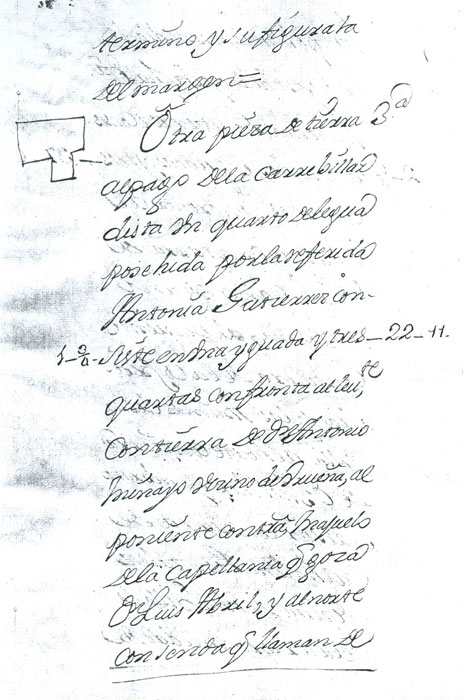 termino y su figura la
del margen=
Otra pieza de tierra 3ª
al pago dela Carrebillaz
dista Un quarto delegua
poschida porla referida
Antonia Gutierrez con-
1-3/4- siste en Una yguada y tres - 22 - 11-
quartas confronta al leu,te
Con tierra de Dn Antonio
Vecino de Dueña, al
poniente contra, Majuelo
dela Capellania q goza
Dn Luis Abril, y al norte
con senda q llaman de